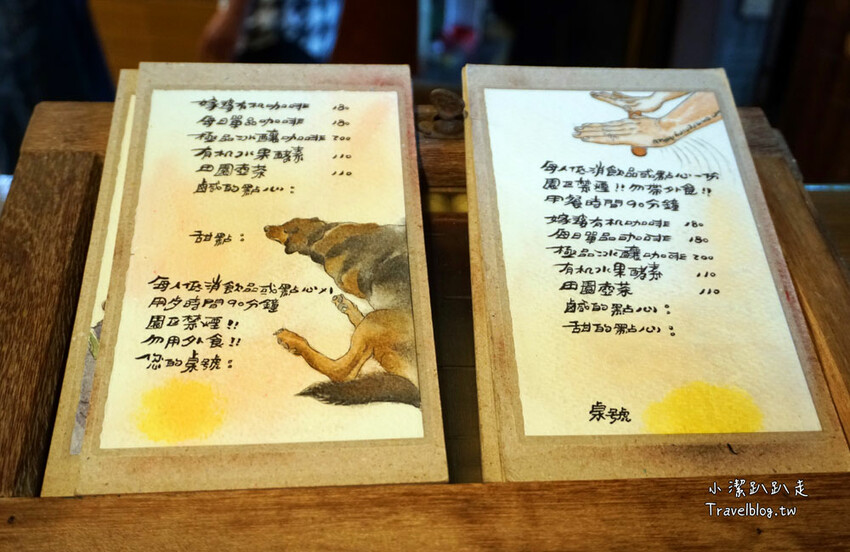 嫁粧有机咖啡 180
每日單品咖啡 180
極品冰釀咖啡 200
有机水果酵素 110
田園壺茶 110
鹹的點心：
甜點：
每人低消飲品或點心
用歺時間90分鐘
園區禁煙!!
勿用外食!!
您的桌號：
每人低消飲品或點心一份
園區禁煙!! 勿帶外食!!
用餐時間90分鐘
嫁粧有机咖啡 180
每日單品咖啡 180
極品冰釀咖啡 200
有机水果酵素 110
田園壺茶 110
鹹的點心：
甜的點心：
桌號
小潔趴趴走
Travelblog.tw